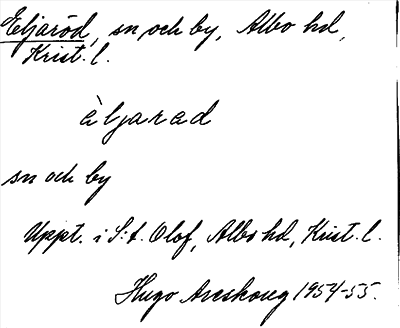 Eljaröd, sn och by, Albo hd,
Krist. l.
àljarad
sn och by
Uppt. i S:t. Olof, Albo hd, Krist. l.
Hugo Areskoug 1954-55.